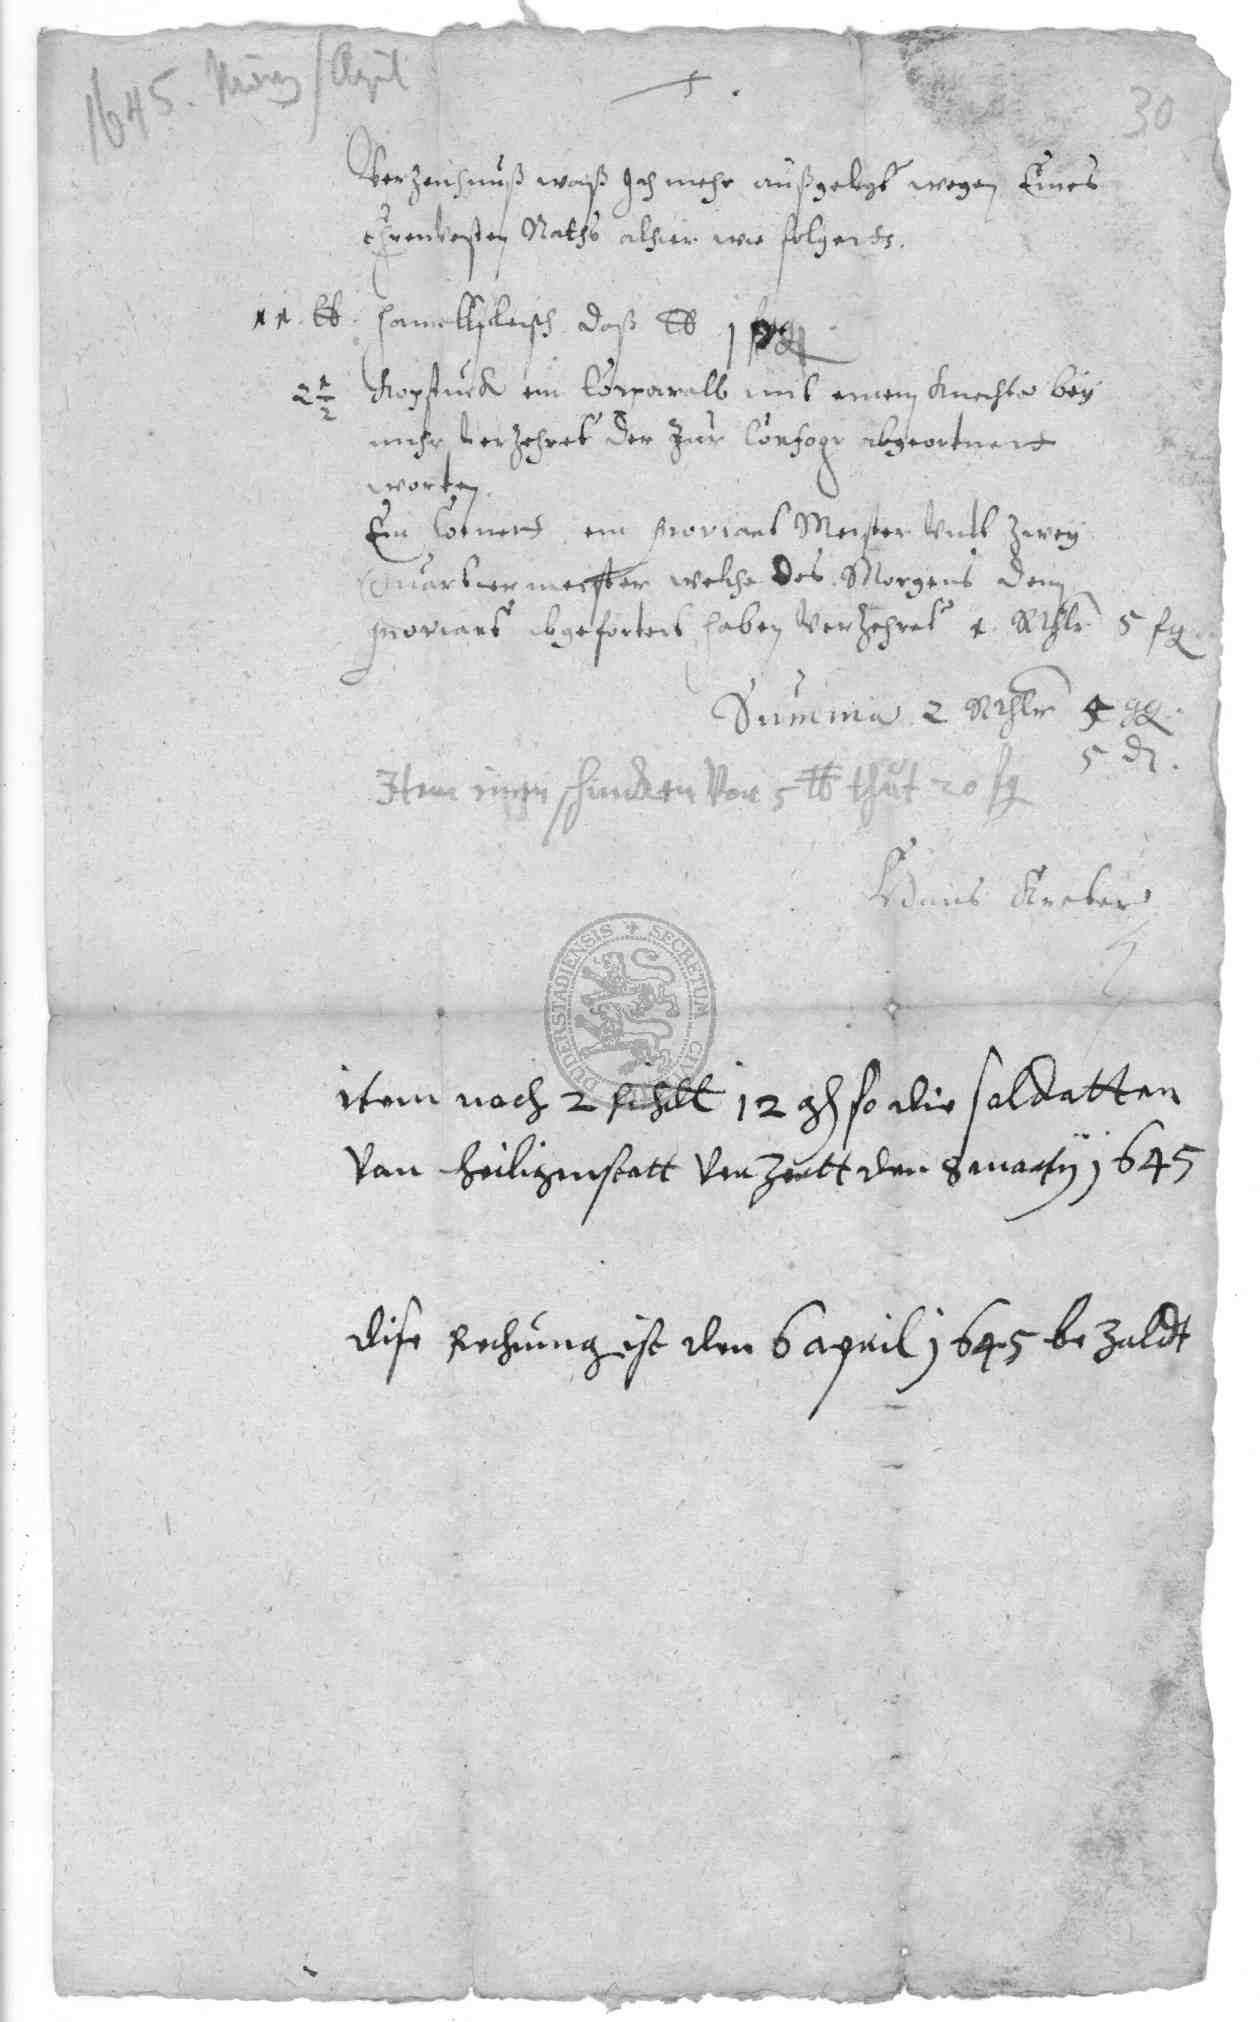 1645. März/April
30
Verzeichnuß waß Ich mehr außgelegt wegen Eines
Ehrenvesten Raths alhier wie folgents.
11 ℔ hamellfleisch daß ℔ 1
2 1/2 Kopstuck ein Corporall mit einem Knechte bey
mihr verzehret der zur Confogi abgeortnert
worten
Ein Cornett ein proviant Meister Undt zwey
Quartiermeister welche des Morgens den
proviant abgefortert haben verzehret 1 Rthlr 5 ßg
Summa 2 Rthlr 4 gg.
5 d.
Item schincken von 5 ℔ thut 20 ßg
Hans
DUDERSTADIENSIS SECRETUM
item noch 2 12 gh so die soldatten
van heiligenstatt verzertt den 8 martij 1645
dise rechnung ist den 6 april 1645 bezaldt